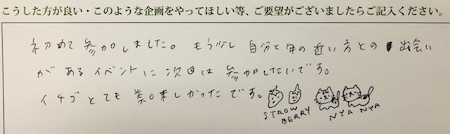 こうした方が良い・このような企画をやってほしい等、ご要望がございましたらご記入ください。
初めて参加しました。もう少し自分と年の近い方との出会い
があるイベントに次回は参加したいです。
イチゴとても美味しかったです。
STROW
BERRY
NYA NYA